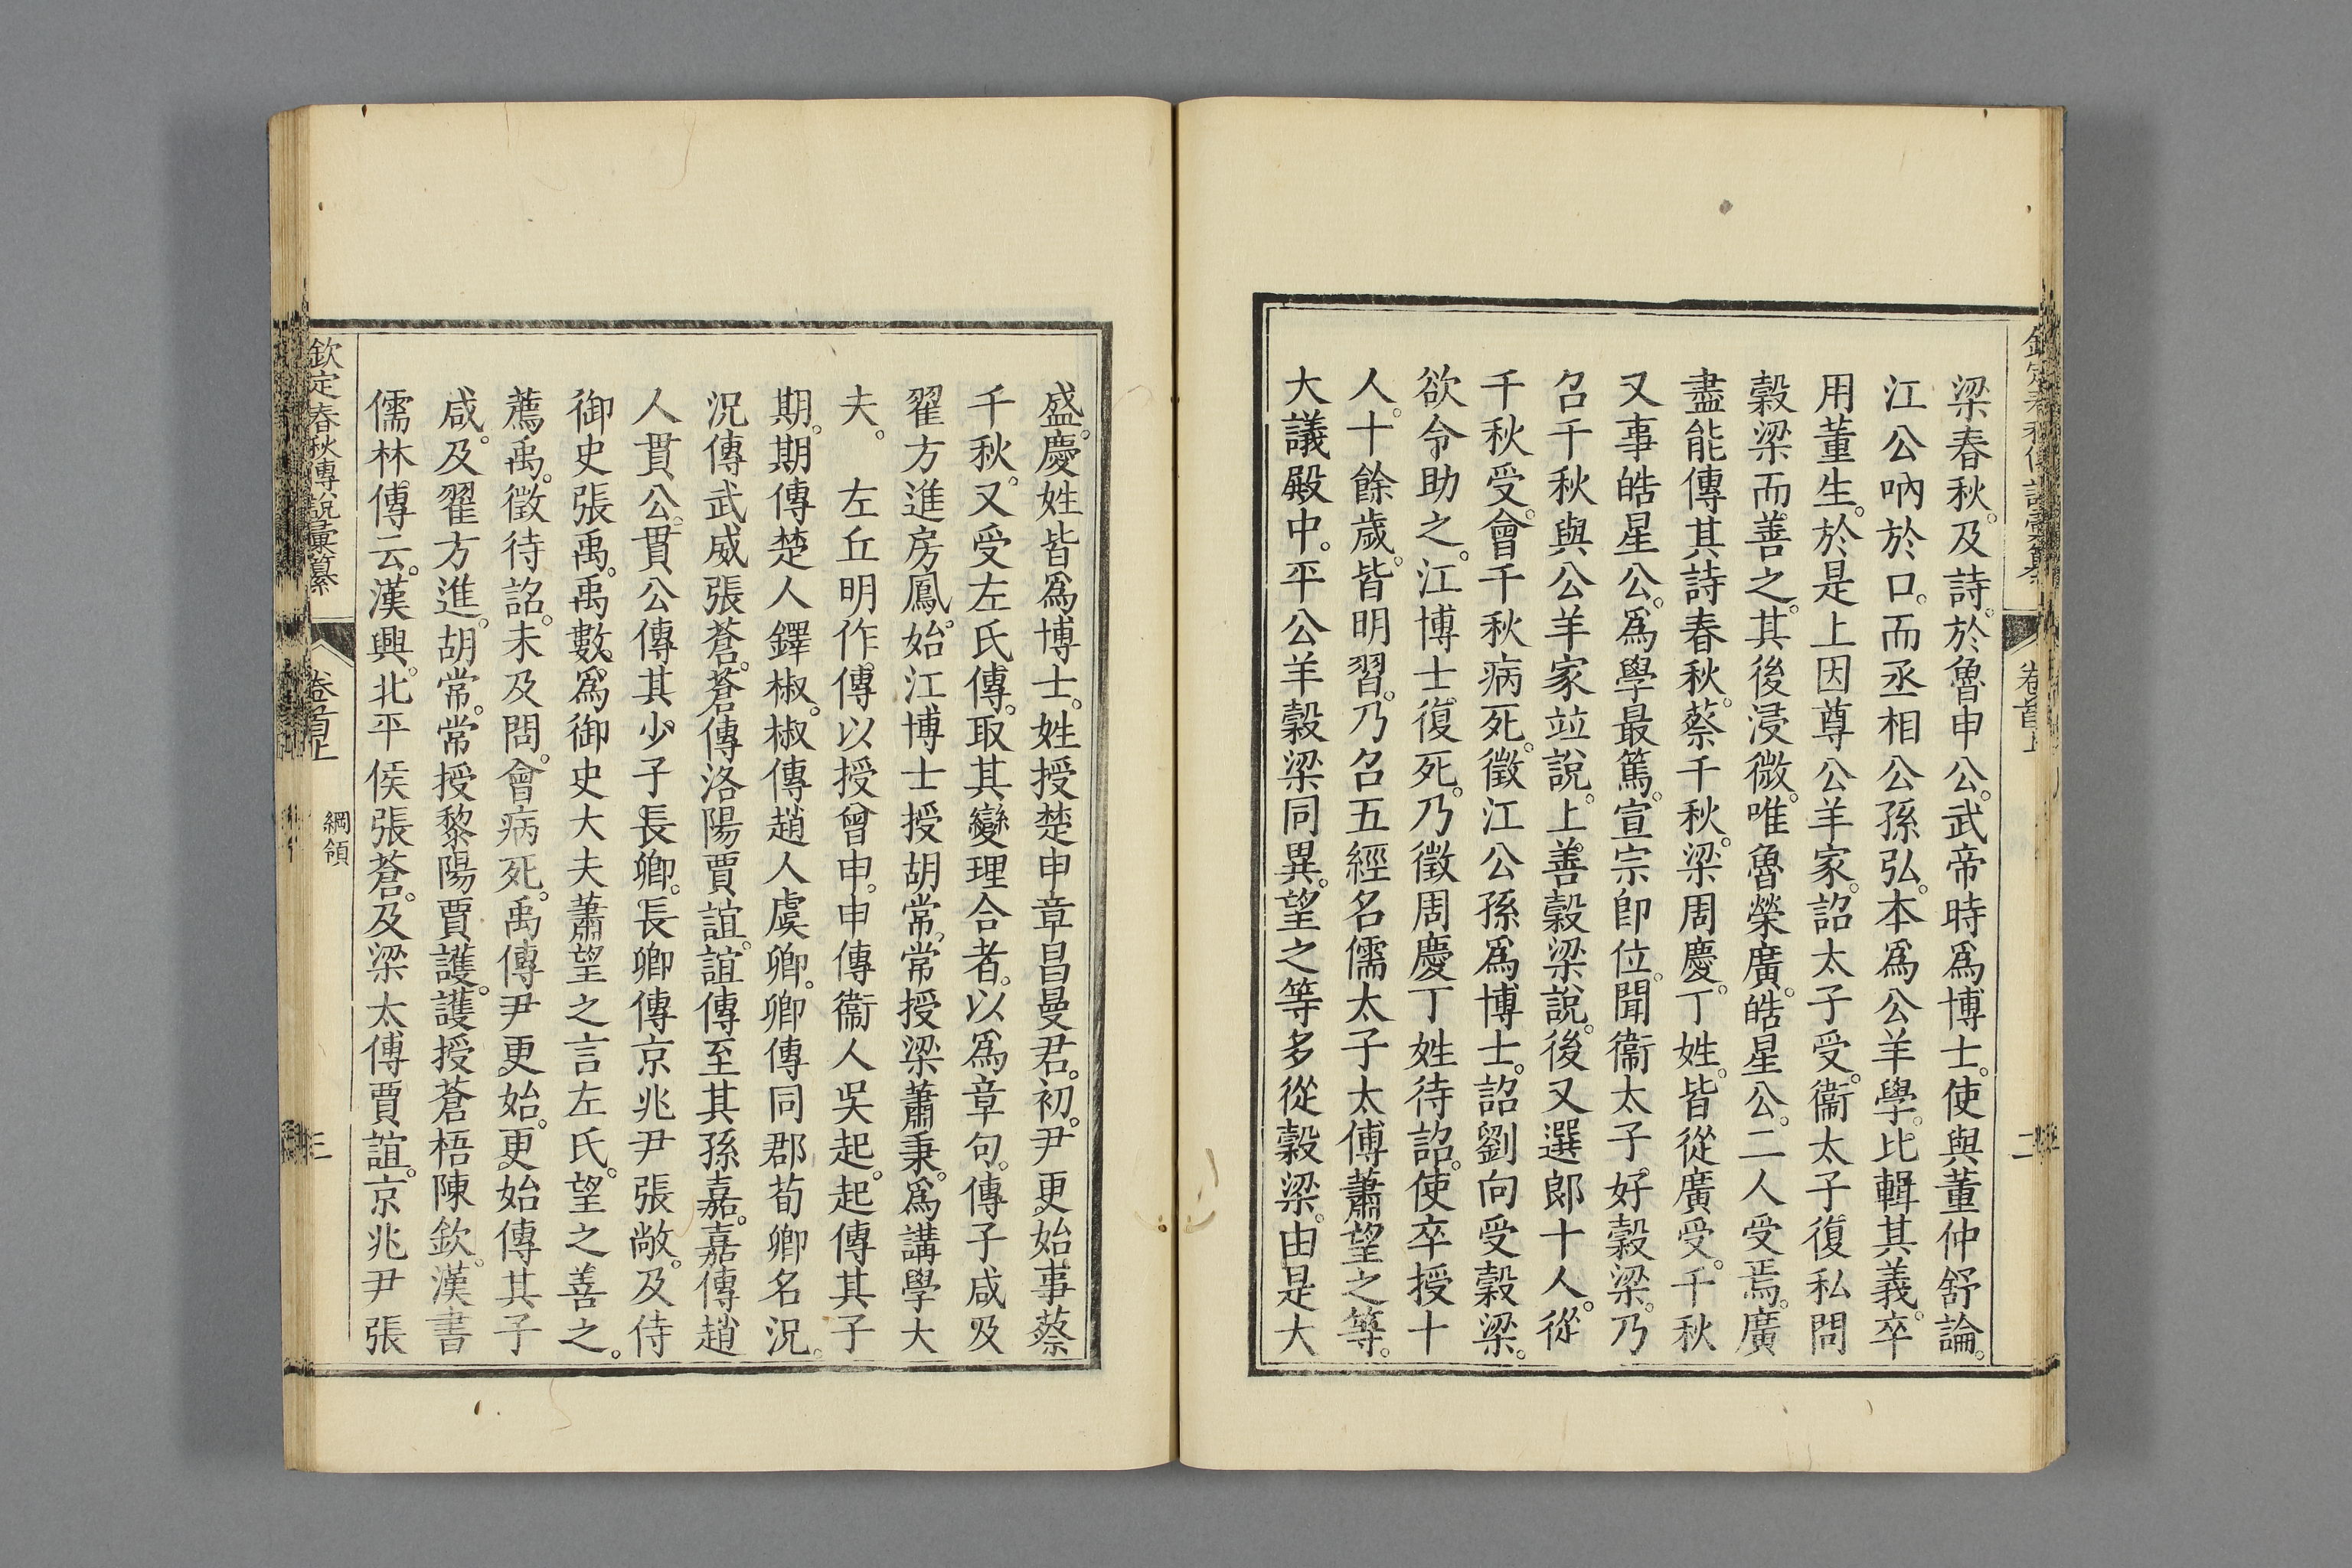 梁春秋。及詩。於魯申公。武帝時爲博士。使與董仲舒論。
江公吶於口。而丞相公孫弘。本爲公羊學。比輯其義。卒
用董生。於是上因尊公羊家。詔太子受。衞太子復私問
穀梁而善之。其後浸微。唯魯榮廣。皓星公。二人受焉。廣
盡能傳其詩春秋。蔡千秋。梁周慶。丁姓。皆從廣受。千秋
又事皓星公。爲學最篤。宣宗卽位。聞衞太子好穀梁。乃
召千秋與公羊家竝說。上善穀梁說。後又選郎十人。從
千秋受。會千秋病死。徵江公孫爲博士。詔劉向受穀梁。
欲令助之。江博士復死。乃徵周慶丁姓待詔。使卒授十
人。十餘歲。皆明習。乃召五經名儒太子太傅蕭望之等。
大議殿中。平公羊穀梁同異。望之等多從穀梁。由是大
欽定春秋傳說彙纂
卷首上
二
盛。慶姓皆爲博士。姓授楚申章昌曼君。初。尹更始事蔡
千秋。又受左氏傳。取其變理合者。以爲章句。傳子咸及
翟方進房鳳。始江博士授胡常。常授梁蕭秉。爲講學大
夫。 左丘明作傳以授曾申。申傳衞人吳起。起傳其子
期。期傳楚人鐸椒。椒傳趙人虞卿。卿傳同郡荀卿名況。
況傳武威張蒼。蒼傳洛陽賈誼。誼傳至其孫嘉。嘉傳趙
人貫公。貫公傳其少子長卿。長卿傳京兆尹張敞。及侍
御史張禹。禹數爲御史大夫蕭望之言左氏。望之善之。
薦禹。徵待詔。未及問。會病死。禹傳尹更始。更始傳其子
咸。及翟方進。胡常。常授黎陽賈護。護授蒼梧陳欽。漢書
儒林傳云。漢興。北平侯張蒼。及梁太傅賈誼。京兆尹張
欽定春秋傳說彙纂
卷首上
綱領
三